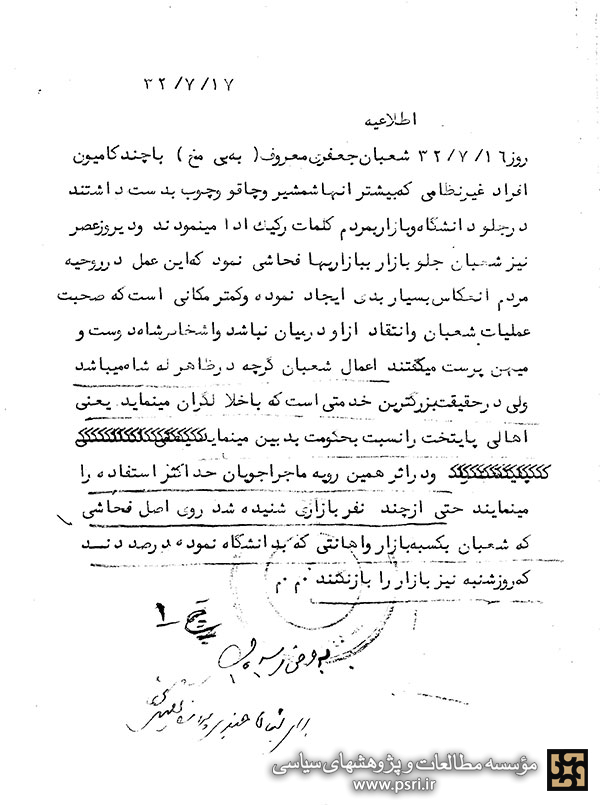 ۳۲/۷/۱۷
اطلاعیه
روز ۳۲/۷/۱٦ شعبان جعفری معروف ( به بی مخ ) با چند کامیون
افراد غیرنظامی که بیشتر انها شمشیر و چاقو و چوب بدست داشتند
در جلو دانشگاه و بازار بمردم کلمات رکیک ادا مینمودند و دیروز عصر
نیز شعبان جلو بازار ببازاریها فحاشی نمود که این عمل در روحیه
مردم انعکاس بسیار بدی ایجاد نموده و کمتر مکانی است که صحبت
عملیات شعبان وانتقاد ازاو در میان نباشد واشخاص شاه دوست و
میهن پرست میگفتند اعمال شعبان گرچه در ظاهر له شاه میباشد
ولی در حقیقت بزرگترین خدمتی است که باخلا لگران مینماید یعنی
اهالی پایتخت را نسبت بحکومت بدبین مینماید
ودر اثر همین رویه ماجراجویان حداکثر استفاده را
مینمایند حتی از چند نفر بازاری شنیده شد روی اصل فحاشی
که شعبان بکسبه بازار و اهانتی که بدانشگاه نموده درصددند
که روز شنبه نیز بازار را بازنکنند م.م
بعرض رسید
مؤسسه مطالعات و پژوهشهای سیاسی
www.psri.ir